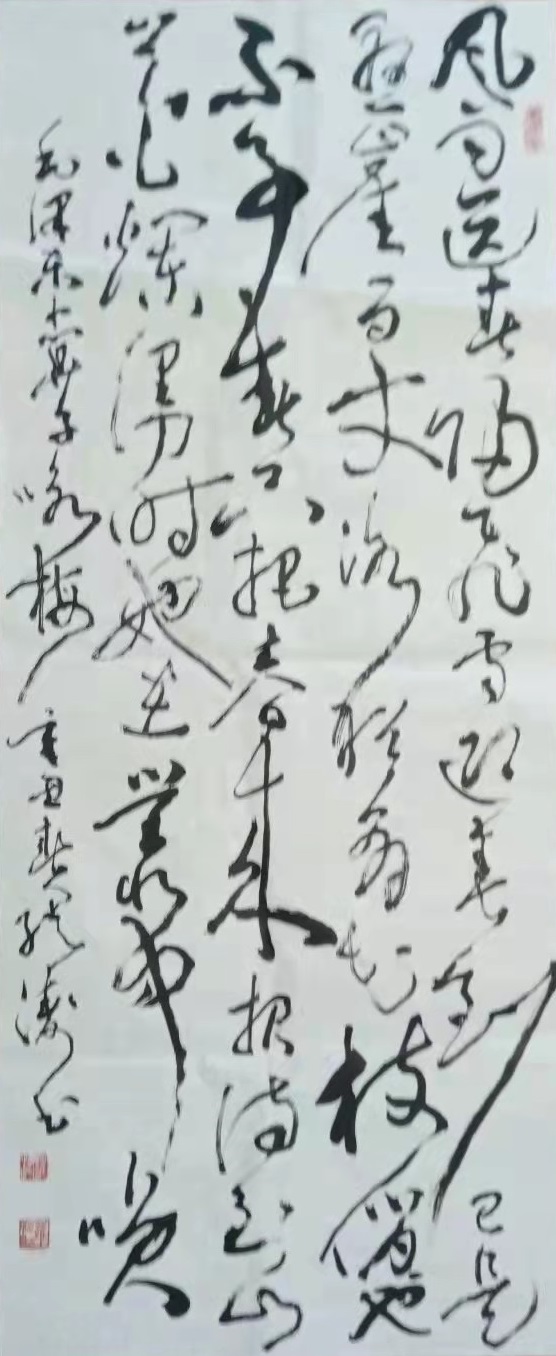 风雨送春归飞雪迎春到已是
悬崖百丈冰犹有花枝俏俏也
不争春只把春来报待到山
花烂漫时她在丛中笑
毛泽东卜算子咏梅辛丑春书